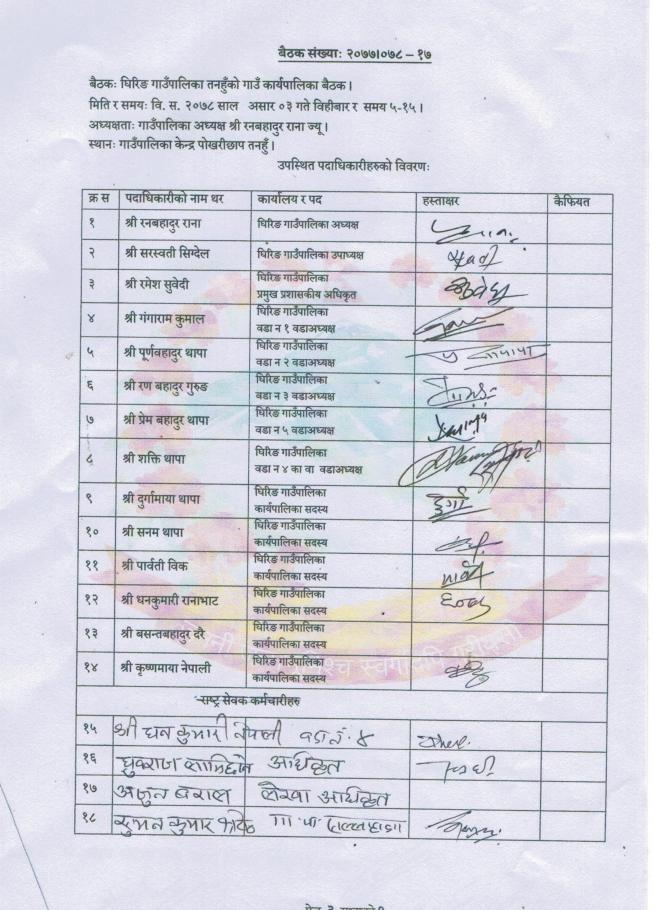 बैठक संख्याः २०७७।०७८ – १७
बैठकः घिरिङ गाउँपालिका तनहुँको गाउँ कार्यपालिका बैठक ।
मिति र समयः वि. स. २०७८ साल असार ०३ गते विहीबार र समय ५-१५ ।
अध्यक्षताः गाउँपालिका अध्यक्ष श्री रनबहादुर राना ज्यू ।
स्थानः गाउँपालिका केन्द्र पोखरीछाप तनहुँ ।
उपस्थित पदाधिकारीहरुको विवरणः
क्र स पदाधिकारीको नाम थर कार्यालय र पद हस्ताक्षर कैफियत
१ श्री रनबहादुर राना घिरिङ गाउँपालिका अध्यक्ष
२ श्री सरस्वती सिग्देल घिरिङ गाउँपालिका उपाध्यक्ष
३ श्री रमेश सुवेदी घिरिङ गाउँपालिका
प्रमुख प्रशासकीय अधिकृत
४ श्री गंगाराम कुमाल घिरिङ गाउँपालिका
वडा न १ वडाअध्यक्ष
५ श्री पूर्णवहादुर थापा घिरिङ गाउँपालिका
वडा न २ वडाअध्यक्ष
६ श्री रण बहादुर गुरुङ घिरिङ गाउँपालिका
वडा न ३ वडाअध्यक्ष
७ श्री प्रेम बहादुर थापा घिरिङ गाउँपालिका
वडा न ५ वडाअध्यक्ष
८ श्री शक्ति थापा घिरिङ गाउँपालिका
वडा न ४ का वा वडाअध्यक्ष
९ श्री दुर्गामाया थापा घिरिङ गाउँपालिका
कार्यपालिका सदस्य दुर्गा
१० श्री सनम थापा घिरिङ गाउँपालिका
कार्यपालिका सदस्य
११ श्री पार्वती विक घिरिङ गाउँपालिका
कार्यपालिका सदस्य
१२ श्री धनकुमारी रानाभाट घिरिङ गाउँपालिका
कार्यपालिका सदस्य
१३ श्री बसन्तबहादुर दरै घिरिङ गाउँपालिका
कार्यपालिका सदस्य
१४ श्री कृष्णमाया नेपाली घिरिङ गाउँपालिका
कार्यपालिका सदस्य
राष्ट्र सेवक कर्मचारीहरु
१५ श्री धन कुमारी नेपाली वडा नं. ४
१६ आधिकृत
१७ अर्जुन बराल लेखा आधिकृत
१८ सुमन कुमार